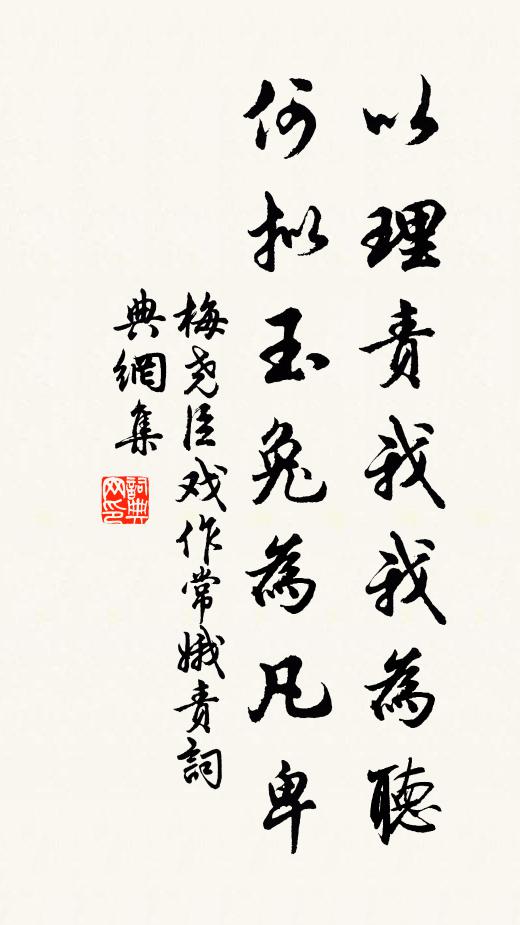 以理責我我為聽
何擬玉兔為凡卑
梅尧臣戏作常娥責詞
典網集
詞典網印